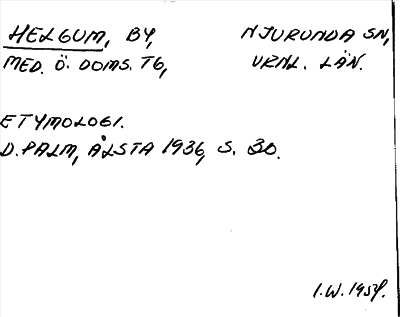 HELGUM, BY, NJURUNDA SN,
MED. Ö. DOMS. TG, VRNL. LÄN.
ETYMOLOGI.
D. PALM, ÅLSTA 1936, S. 30.
I.W. 1954.